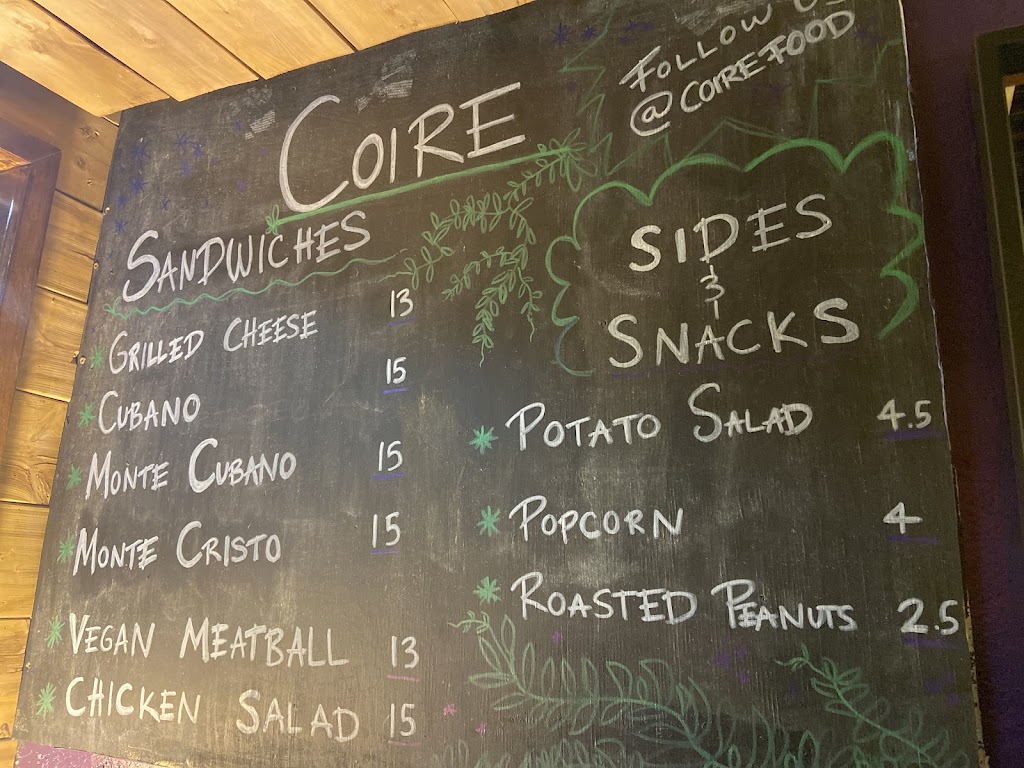 COIRE
FOLLOW US
@COIRE.FOOD
SANDWICHES
GRILLED CHEESE 13
CUBANO 15
MONTE CUBANO 15
MONTE CRISTO 15
VEGAN MEATBALL 13
CHICKEN SALAD 15
SIDES
&
SNACKS
POTATO SALAD 4.5
POPCORN 4
ROASTED PEANUTS 2.5